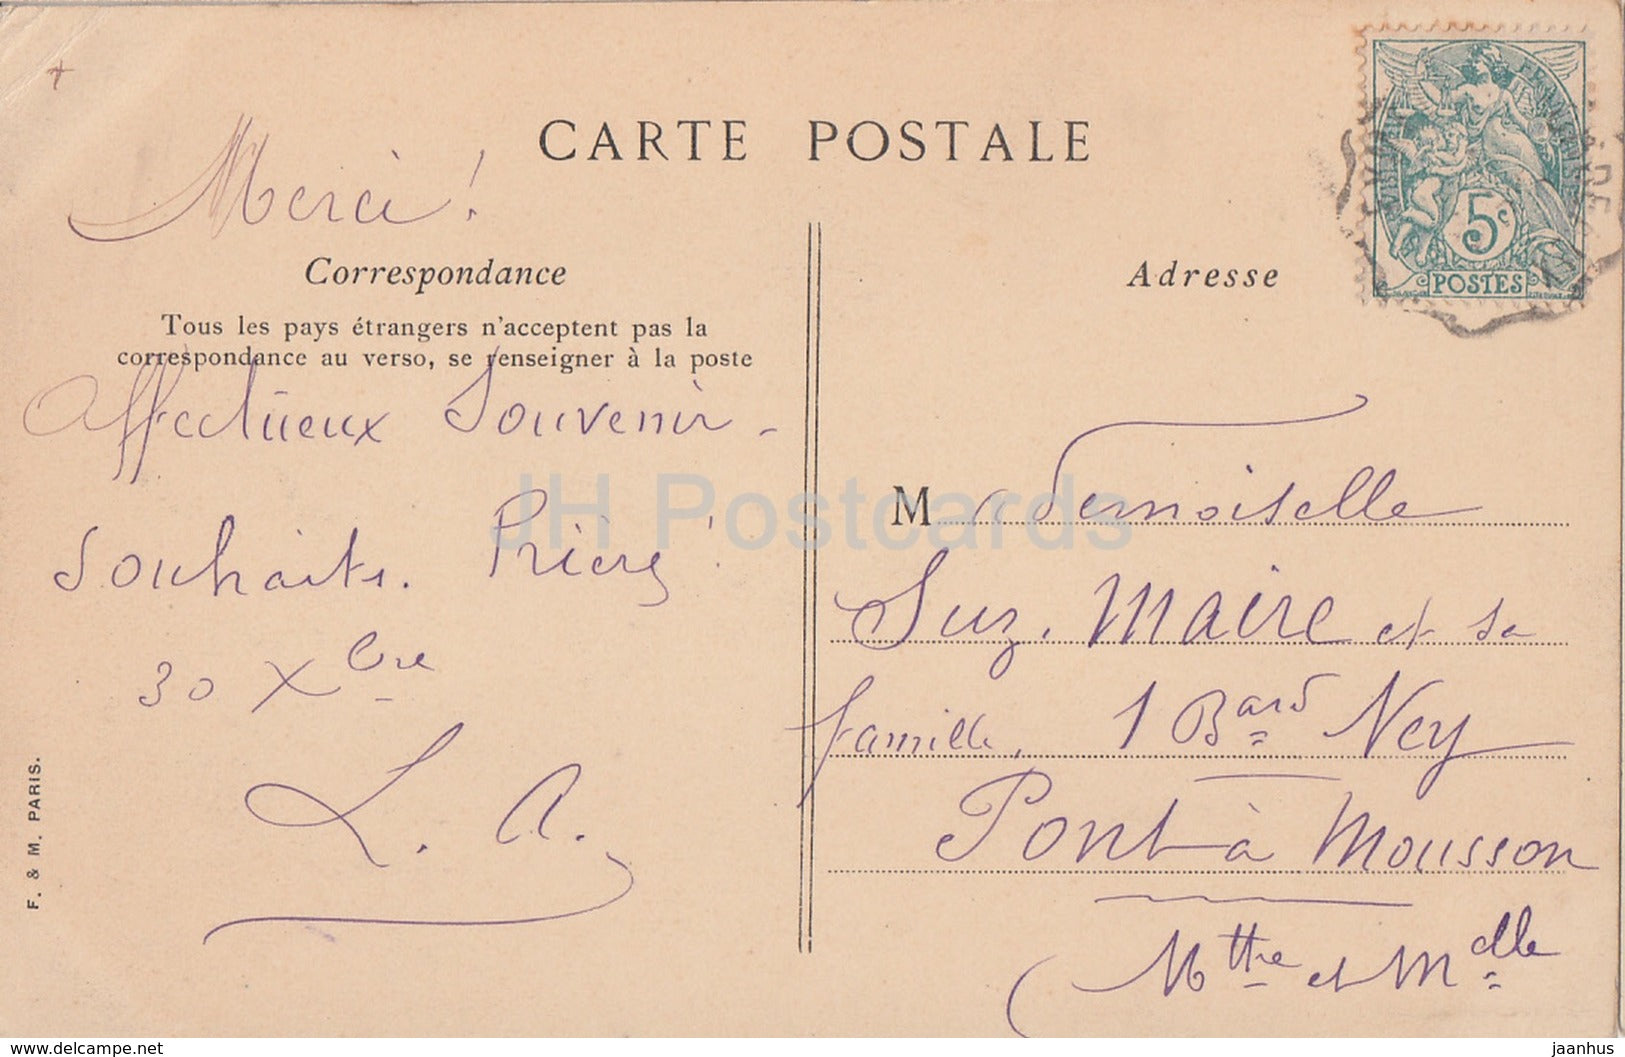 CARTE POSTALE
Merci !
Correspondance
Tous les pays étrangers n'acceptent pas la
correspondance au verso, se renseigner à la poste
Affectueux Souvenir -
Souhaits. Prières !
30 Xbre
L. A.
F. & M. PARIS.
5c
POSTES
Adresse
Mademoiselle
Suz. Maire et sa
famille, 1 Bard Ney
Pont-à Mousson
(Mtthe et Mdlle
JH Postcards
www.delcampe.net
jaanhus